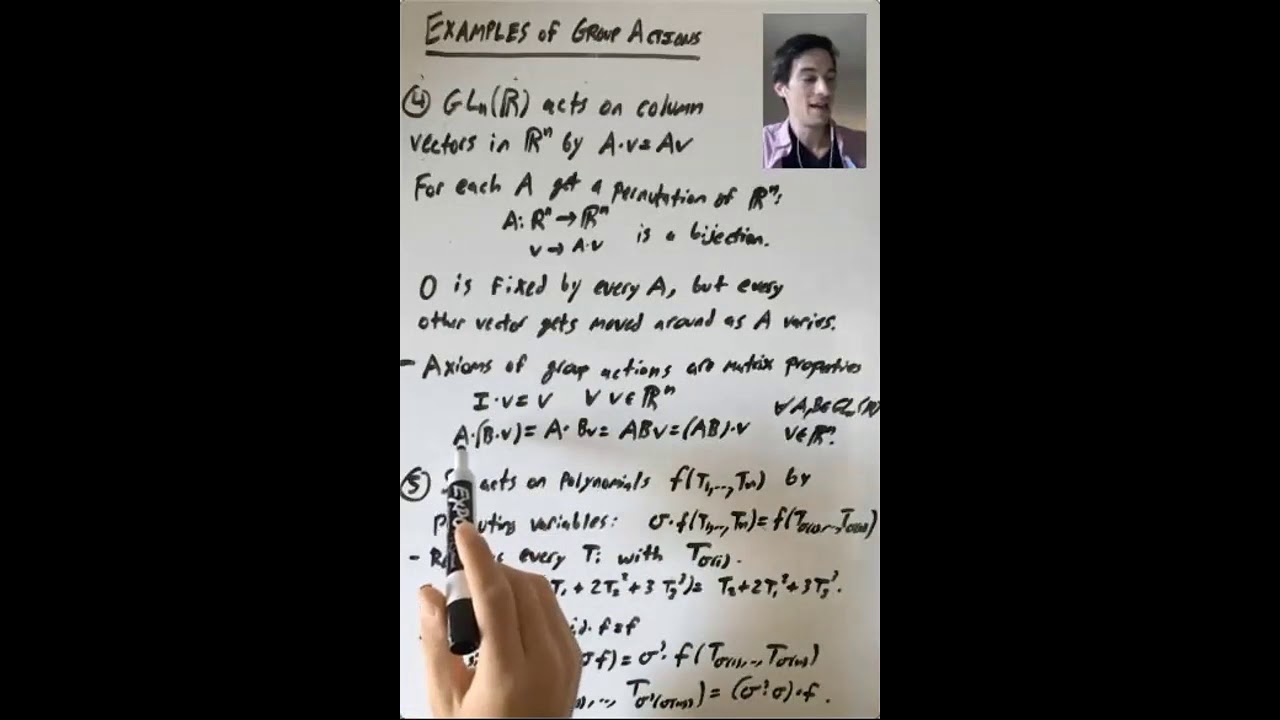 EXAMPLES OF GROUP ACTIONS
④ GLₙ(ℝ) acts on column
vectors in ℝⁿ by A·v = Av
For each A get a permutation of ℝⁿ:
A: ℝⁿ → ℝⁿ
v → A·v is a bijection.
0 is fixed by every A, but every
other vector gets moved around as A varies.
- Axioms of group actions are matrix properties
I·v = v ∀ v ∈ ℝⁿ
∀ A,B ∈ GLₙ(ℝ)
A·(B·v) = A·Bv = ABv = (AB)·v v ∈ ℝⁿ.
⑤ acts on polynomials f(T₁,..,Tₙ) by
variables: σ·f(T₁,..,Tₙ) = f(T_σ(1),..,T_σ(n))
- every Tᵢ with T_σ(i).
T₁ + 2T₂² + 3T₃³) = T₂ + 2T₁² + 3T₃³.
f = f
f) = σ'·f(T_σ(1),..,T_σ(n))
,.., T_σ'(σ(n))) = (σ'σ)·f.
EXPO